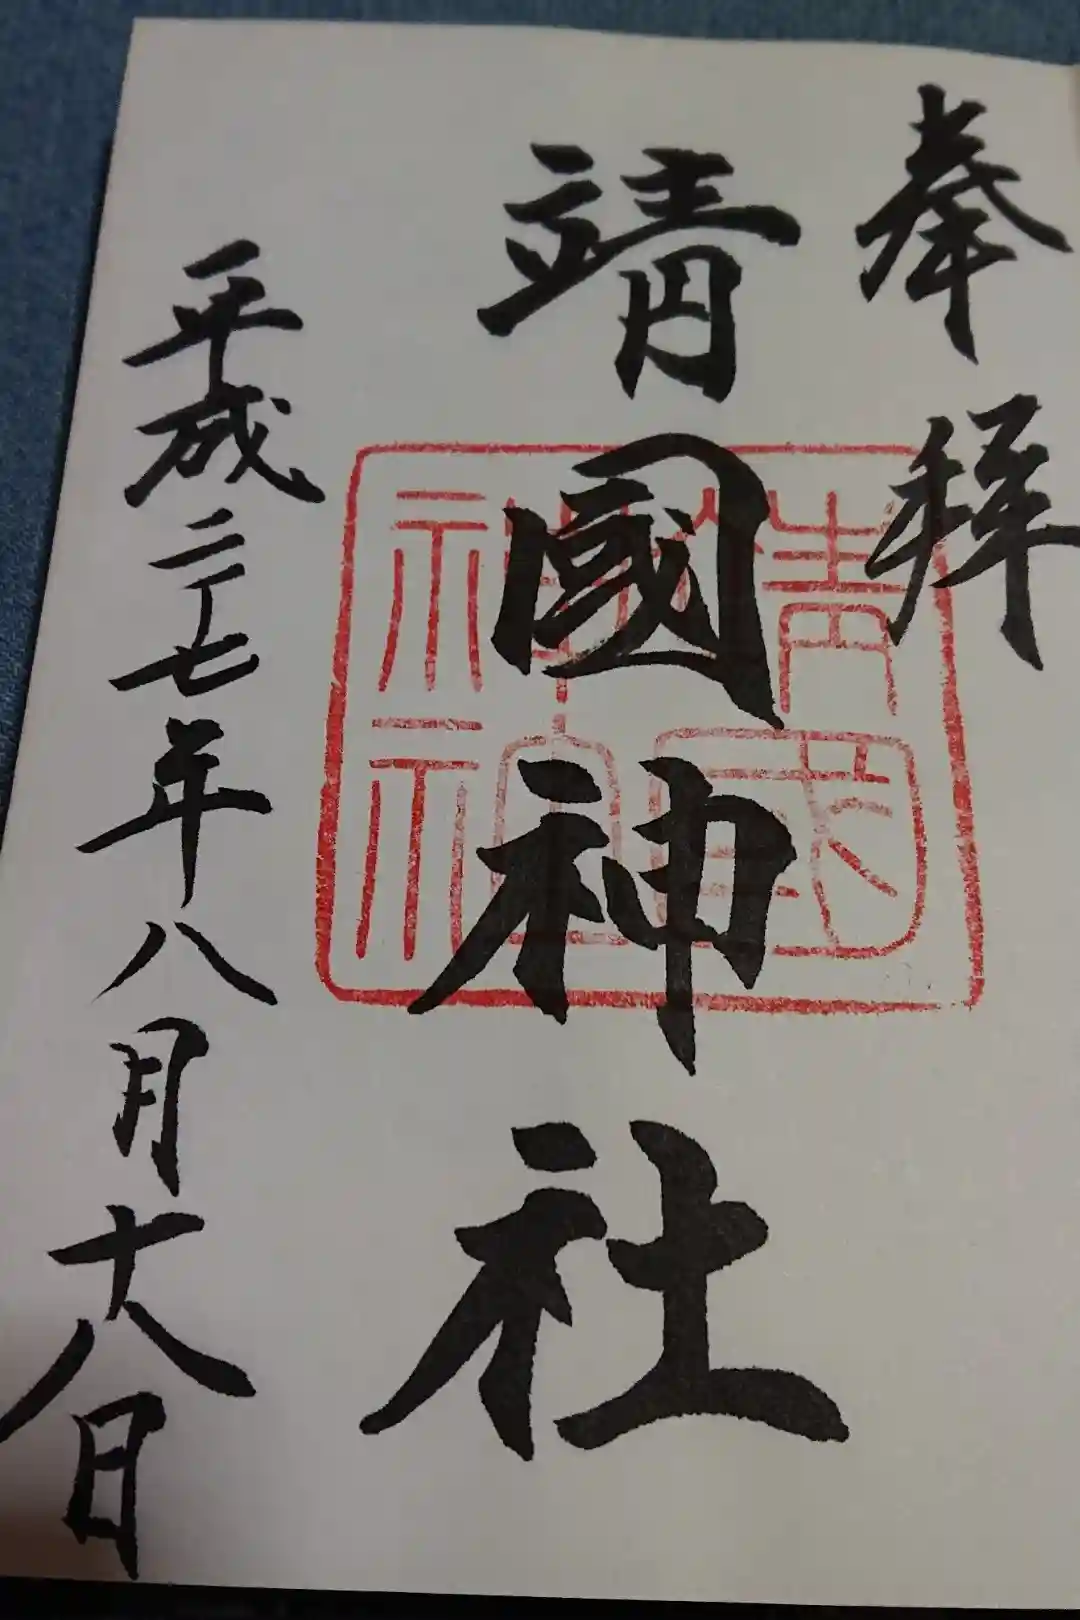 奉拝
靖國神社
靖國神社
平成二十七年八月十八日